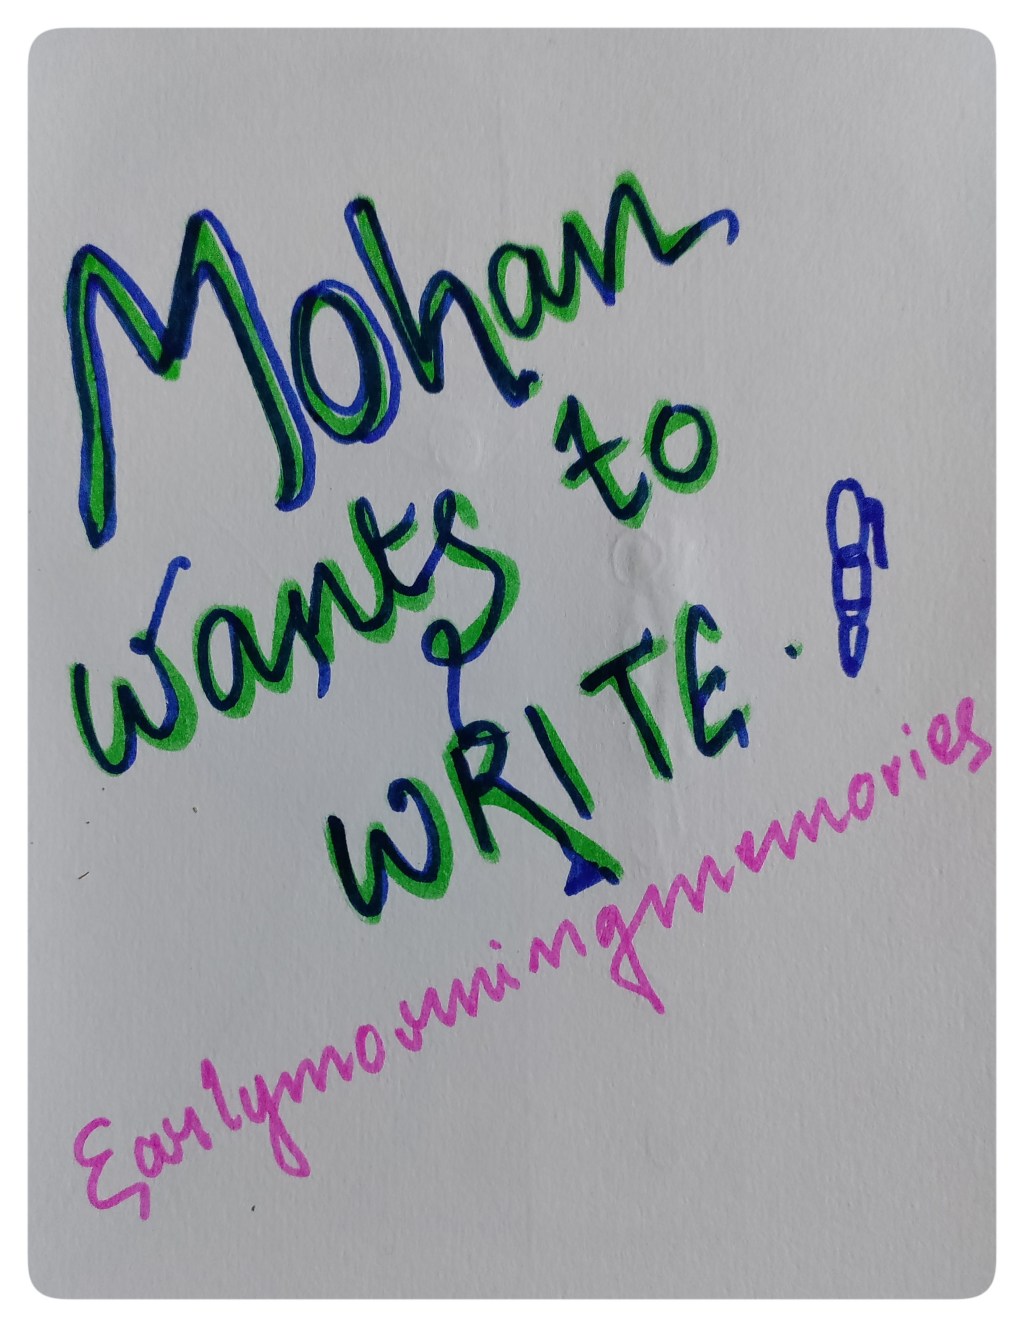 Mohan
wants to
WRITE.
Earlymorningmemories